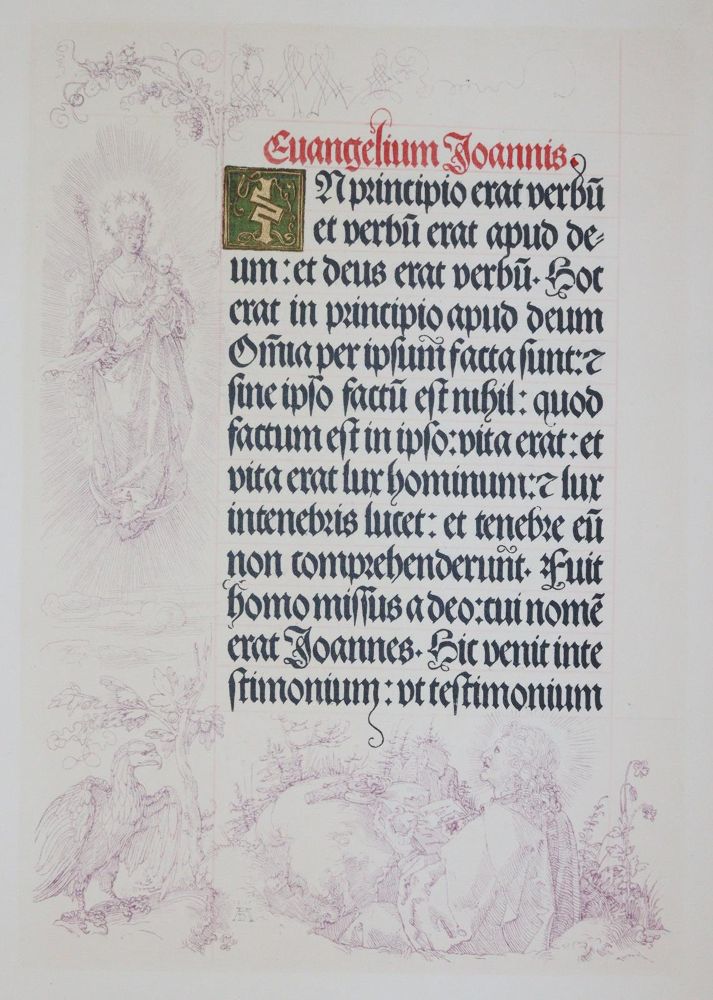 Euangelium Joannis.
IN principio erat verbū
et verbū erat apud de⸗
um: et deus erat verbū. Hoc
erat in principio apud deum
Om̄ia per ipsum̄ facta sunt: ⁊
sine ip̄o factū est nihil: quod
factum est in ipso: vita erat: et
vita erat lux hominum: ⁊ lux
in tenebris lucet: et tenebre eū
non comprehenderun̄t. Fuit
homo missus a deo: cui nomē
erat Joannes. Hic venit in te
stimonium: vt testimonium